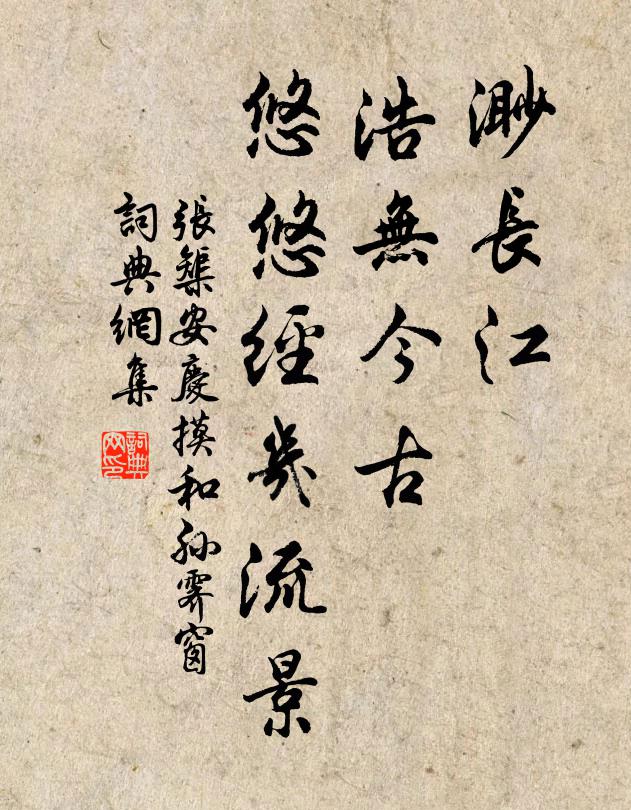 渺長江
浩無今古
悠悠經幾流景
張榘安慶摸和孫霽窗
詞典網集
詞典網印